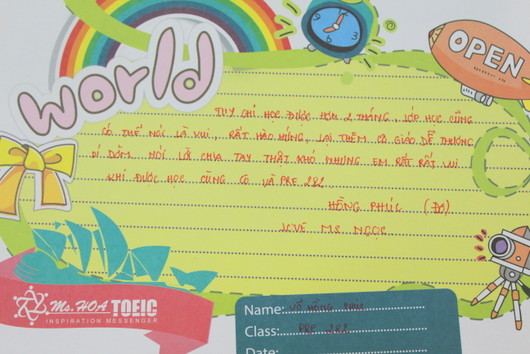 world
OPEN
TUY CHỈ HỌC ĐƯỢC HƠN 2 THÁNG, LỚP HỌC CŨNG
CÓ THỂ NÓI LÀ VUI, RẤT HÀO HỨNG, LẠI THÊM CÔ GIÁO DỄ THƯƠNG
DÍ DỎM. NÓI LỜI CHIA TAY THẬT KHÓ NHƯNG EM RẤT RẤT VUI
KHI ĐƯỢC HỌC CÙNG CÔ VÀ PRE 282
HỒNG PHÚC
LOVE MS NGỌC
Ms. HOA TOEIC
INSPIRATION MESSENGER
Name: VÕ HỒNG PHÚC
Class: PRE 282
Date: